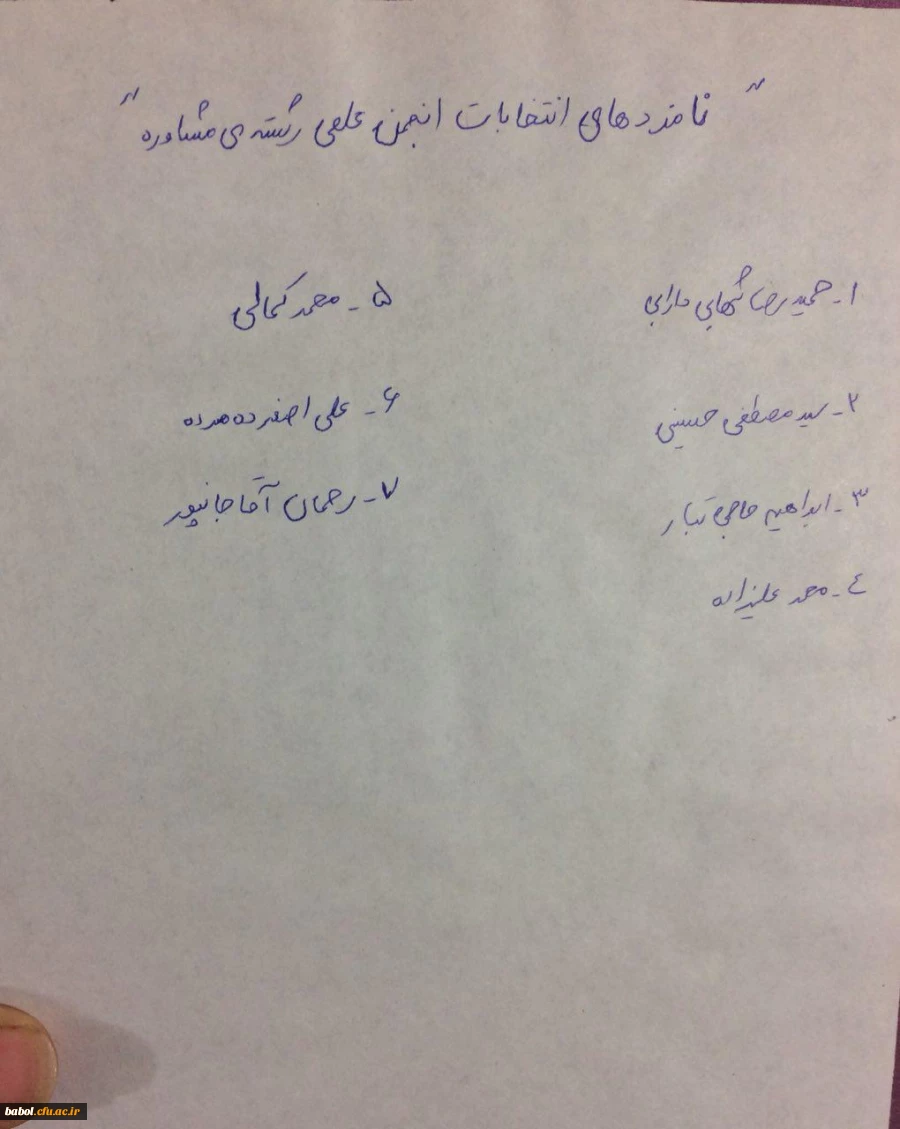 "نامزدهای انتخابات انجمن علمی رشته ی مشاوره"
۱- حمیدرضا شهابی دارابی
۲- سید مصطفی حسینی
۳- ابراهیم حاجی تبار
۴- محمد علیزاده
۵- محمد کمالی
۶- علی اصغر ده مرده
۷- رحمان آقاجانپور
babol.cfu.ac.ir